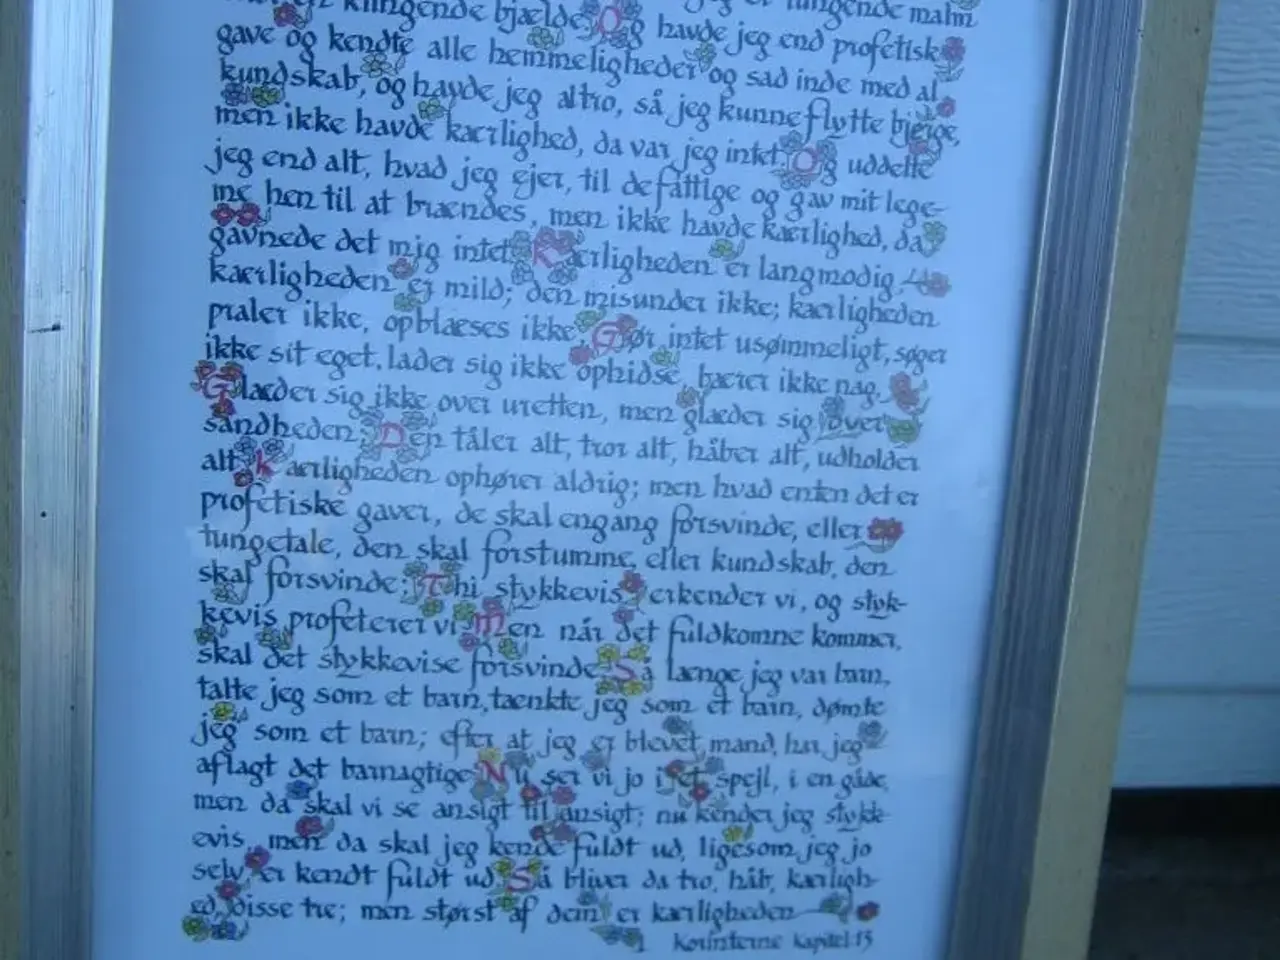 klingende bjælde. Og havde jeg end profetisk
gave og kendte alle hemmeligheder og sad inde med al
kundskab, og havde jeg al tro, så jeg kunne flytte bjerge,
men ikke havde kærlighed, da var jeg intet. Og uddelte
jeg end alt, hvad jeg ejer, til de fattige og gav mit lege-
me hen til at brændes, men ikke havde kærlighed, da
gavnede det mig intet. Kærligheden er langmodig
kærligheden er mild; den misunder ikke; kærligheden
praler ikke, opblæses ikke. Gør intet usømmeligt, søger
ikke sit eget, lader sig ikke ophidse, bærer ikke nag.
Glæder sig ikke over uretten, men glæder sig over
sandheden. Den tåler alt, tror alt, håber alt, udholder
alt. Kærligheden ophører aldrig; men hvad enten det er
profetiske gaver, de skal engang forsvinde, eller
tungetale, den skal forstumme, eller kundskab, den
skal forsvinde; Thi stykkevis erkender vi, og styk-
kevis profeterer vi. Men når det fuldkomne kommer,
skal det stykkevise forsvinde. Så længe jeg var barn,
talte jeg som et barn, tænkte jeg som et barn, dømte
jeg som et barn; efter at jeg er blevet mand, har jeg
aflagt det barnagtige. Nu ser vi jo i et spejl, i en gåde,
men da skal vi se ansigt til ansigt; nu kender jeg stykk-
evis, men da skal jeg kende fuldt ud, ligesom jeg jo
selv er kendt fuldt ud. Så bliver da tro, håb, kærligh-
ed, disse tre; men størst af dem er kærligheden
Korinterne Kapitel 13